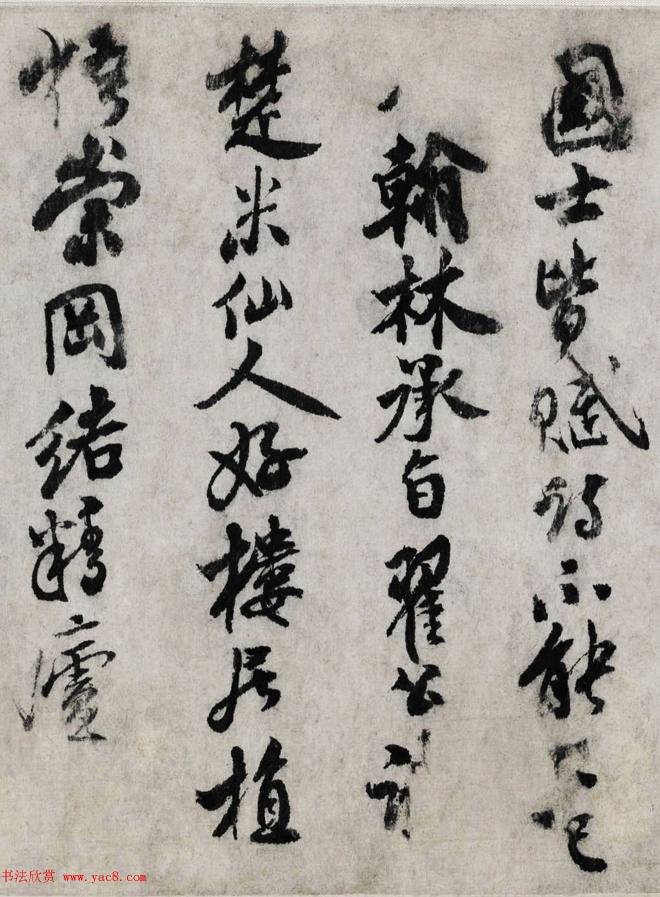 國士皆賦詩不能 記
翰林承旨翟公詩
楚米仙人好樓居植
梧崇岡結精廬
书法欣赏 www.yac8.com